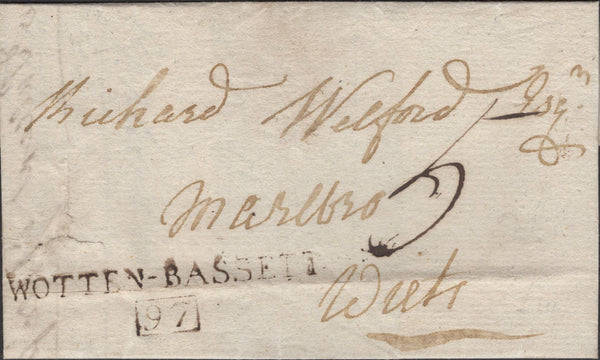 Richard Welford Esqr
Marlbro
5
WOTTEN-BASSETT
97
Wilts